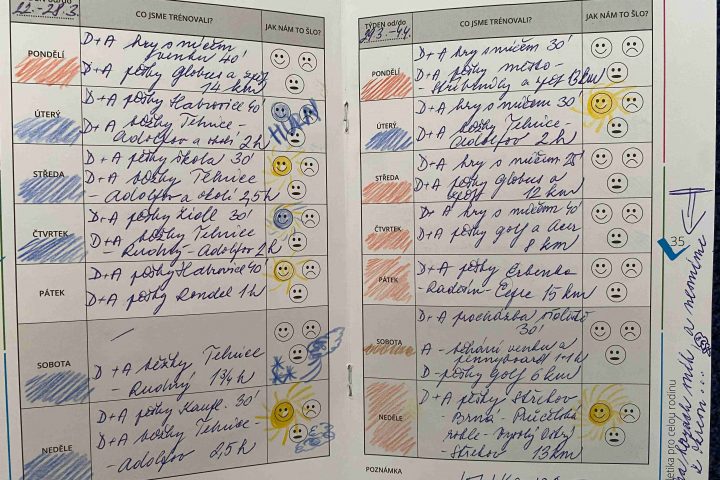 TÝDEN od/do
22.-28.3.
CO JSME TRÉNOVALI?
JAK NÁM TO ŠLO?
PONDĚLÍ
D+A hry s míčem
venku 40'
D+A pěšky Globus a zpět
14 km
ÚTERÝ
D+A pěšky Habrovice 40'
D+A běžky Telnice -
Adolfov a okolí 2h
HURÁ!
STŘEDA
D+A pěšky škola 30'
D+A běžky Telnice
- Adolfov a okolí 2,5h
ČTVRTEK
D+A pěšky Lidl 30'
D+A běžky Telnice
- Rudný - Adolfov 2h
PÁTEK
D+A pěšky Habrovice 40'
D+A pěšky Rondel 1h
SOBOTA
-
D+A běžky Telnice
- Rudný, 1 3/4 h
NEDĚLE
D+A pěšky Kaufl. 30'
D+A běžky Telnice -
- Adolfov 2,5h
TÝDEN od/do
29.3.-4.4.
CO JSME TRÉNOVALI?
JAK NÁM TO ŠLO?
PONDĚLÍ
D+A hry s míčem 30'
D+A pěšky město -
- Střížovičky a zpět 13 km
ÚTERÝ
D+A hry s míčem 30'
D+A běžky Telnice -
Adolfov 2h
STŘEDA
D+A hry s míčem 25'
D+A pěšky Globus a
zpět 12 km
ČTVRTEK
D+ A hry s míčem 40'
D+A pěšky golf a
8 km
PÁTEK
D+A pěšky
- Radešín - 15 km
SOBOTA
D+A procházka
30'
A - běhání venku a
pennyboard 1+1h
D - pěšky Golf 6 km
NEDĚLE
D+A pěšky Střekov
Brná - Průčelská
rokle -
Střekov 13km
POZNÁMKA
35
letika pro celou rodinu
a nesmíme